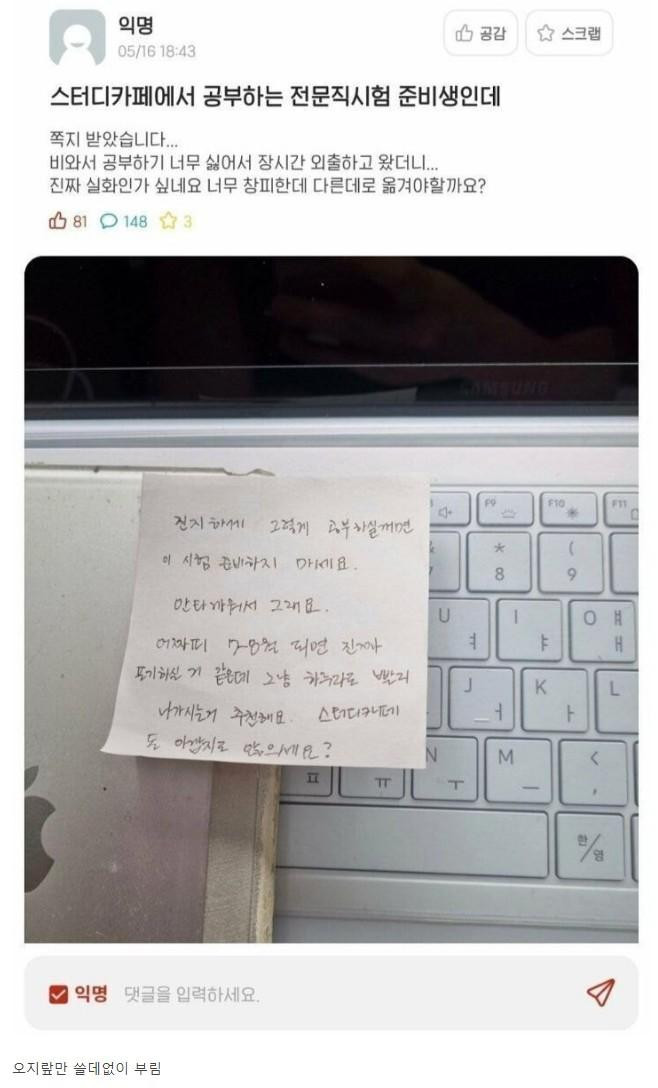 익명
05/16 18:43
공감
스크랩
스터디카페에서 공부하는 전문직시험 준비생인데
쪽지 받았습니다...
비와서 공부하기 너무 싫어서 장시간 외출하고 왔더니...
진짜 실화인가 싶네요 너무 창피한데 다른데로 옮겨야할까요?
81 148 3
SAMSUNG
진지하게 그렇게 공부하실꺼면
이 시험 준비하지 마세요.
안타까워서 그래요.
어짜피 7-8월 되면 진짜
포기하실 거 같은데 그냥 하루라도 빨리
나가시는거 추천해요. 스터디카페
돈 아깝지도 않으세요?
F9 F10 F11
* 8 ( 9
U ㅕ I ㅑ O ㅒ ㅐ
J ㅓ K ㅏ L
N ㅜ M ㅡ < ,
ㅍ ㅠ
한/영
익명 댓글을 입력하세요.
오지랖만 쓸데없이 부림